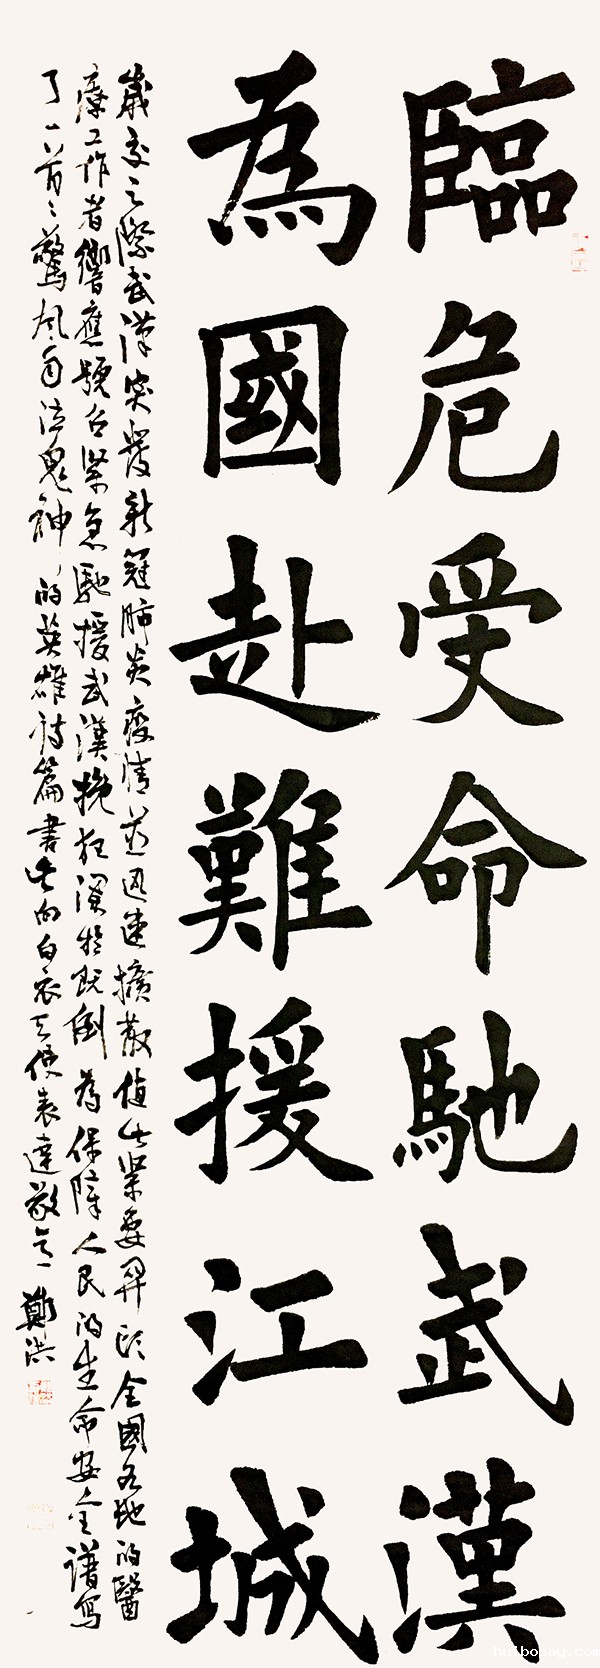 臨危受命馳武漢
為國赴難援江城
歲交之際武漢突發新冠肺炎疫情並迅速擴散值此緊要關頭全國各地的醫
療工作者響應號召緊急馳援武漢挽狂瀾於既倒為保障人民的生命安全譜寫
了一首々驚風雨泣鬼神的英雄詩篇書此向白衣天使表達敬意鄭洪